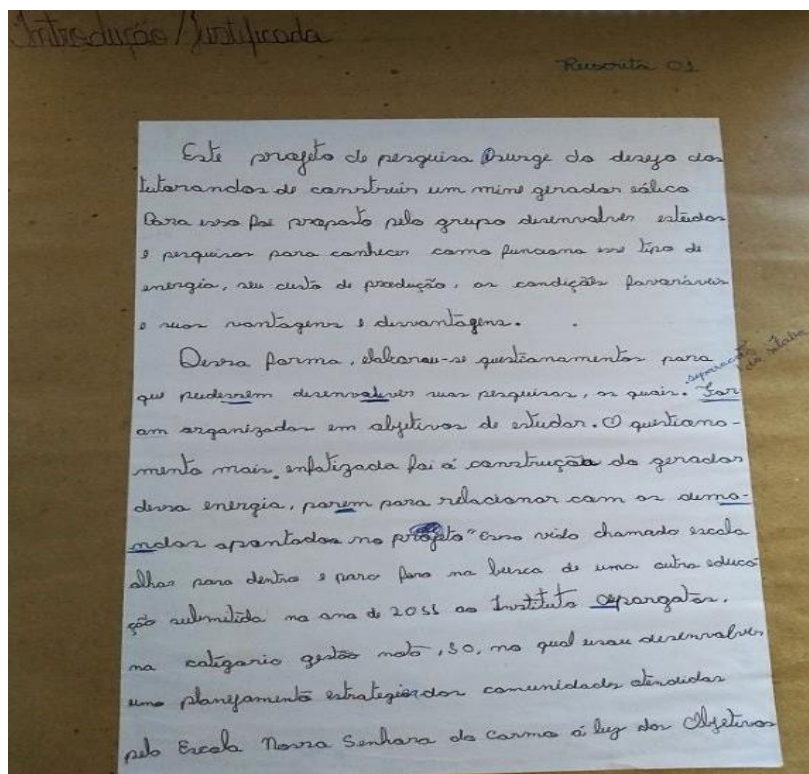 Introdução/Justificada
Reescrita 01
Este projeto de pesquisa surge do desejo dos
tutorandos de construir um mine gerador eólico
Para isso foi proposto pelo grupo disenvolver estudos
e pesquisas para conhecer como funciona esse tipo de
energia, seu custo de produção, as condições favoráveis
e suas vantagens e desvantagens.
Dessa forma, elaborou-se questionamentos para
separação da sílaba
que pudessem desenvolver suas pesquisas, os quais. For
am organizados em objetivos de estudar. O questiona-
mento mais enfatizada foi á construção do gerador
dessa energia, porem para relacionar com as dema-
ndas apontadas no projeto "Essa vida chamada escola
olhar para dentro e para fora na busca de uma outra educa
ção submetida no ano de 2011 ao Instituto apargatas,
na categoria gestão nota, 50, no qual visou desenvolver
uma planejamento estrategico das comunidades atendidas
pela Escola Nossa Senhora do Carmo á luz dos Objetivos